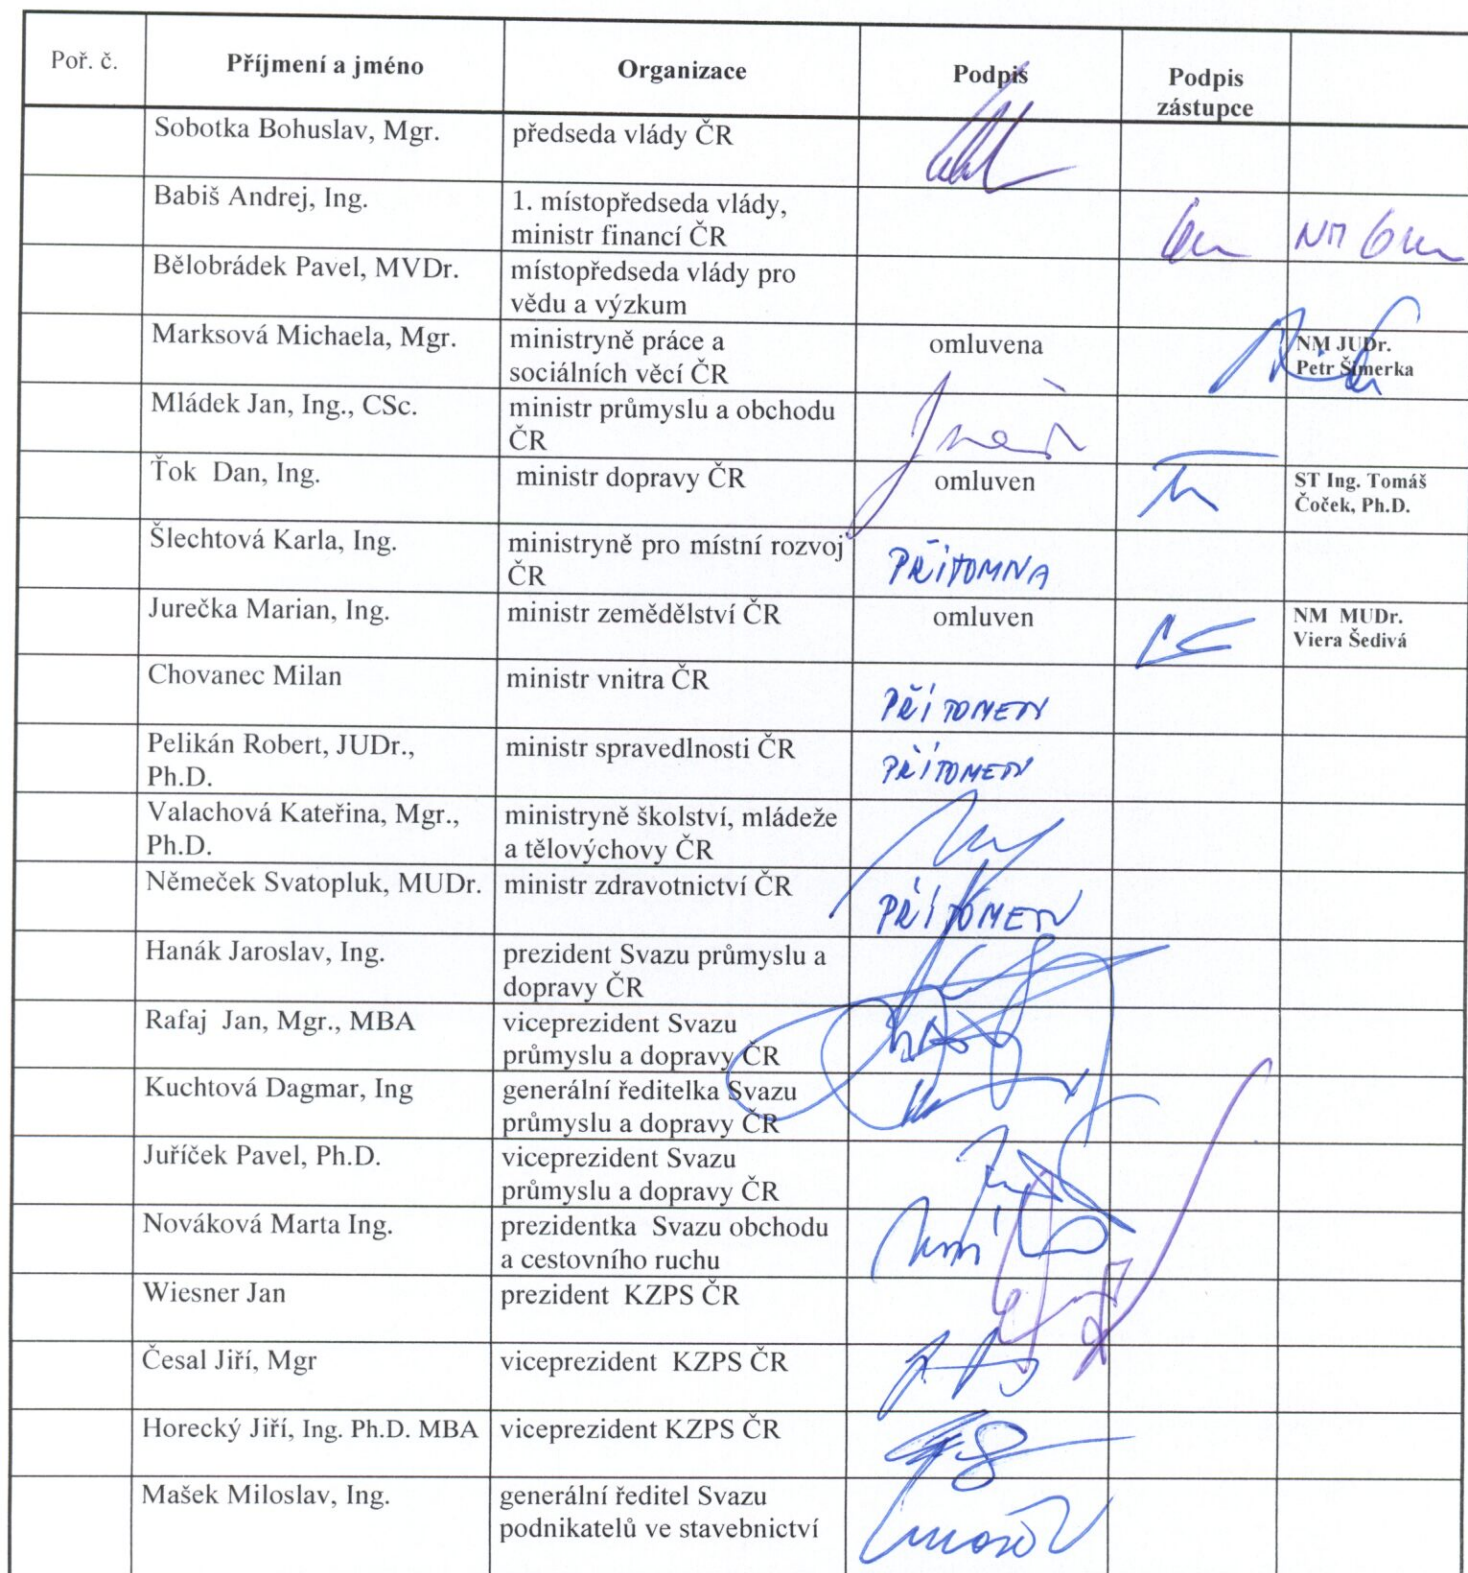 Poř. č. Příjmení a jméno Organizace Podpis Podpis
zástupce
Sobotka Bohuslav, Mgr. předseda vlády ČR
Babiš Andrej, Ing. 1. místopředseda vlády,
ministr financí ČR
Bělobrádek Pavel, MVDr. místopředseda vlády pro
vědu a výzkum
Marksová Michaela, Mgr. ministryně práce a omluvena NM JUDr.
sociálních věcí ČR Petr Šimerka
Mládek Jan, Ing., CSc. ministr průmyslu a obchodu
ČR
Ťok Dan, Ing. ministr dopravy ČR omluven ST Ing. Tomáš
Čoček, Ph.D.
Šlechtová Karla, Ing. ministryně pro místní rozvoj
ČR PŘÍTOMNA
Jurečka Marian, Ing. ministr zemědělství ČR omluven NM MUDr.
Viera Šedivá
Chovanec Milan ministr vnitra ČR
PŘÍTOMEN
Pelikán Robert, JUDr., ministr spravedlnosti ČR
Ph.D. PŘÍTOMEN
Valachová Kateřina, Mgr., ministryně školství, mládeže
Ph.D. a tělovýchovy ČR
Němeček Svatopluk, MUDr. ministr zdravotnictví ČR
PŘÍTOMEN
Hanák Jaroslav, Ing. prezident Svazu průmyslu a
dopravy ČR
Rafaj Jan, Mgr., MBA viceprezident Svazu
průmyslu a dopravy ČR
Kuchtová Dagmar, Ing generální ředitelka Svazu
průmyslu a dopravy ČR
Juříček Pavel, Ph.D. viceprezident Svazu
průmyslu a dopravy ČR
Nováková Marta Ing. prezidentka Svazu obchodu
a cestovního ruchu
Wiesner Jan prezident KZPS ČR
Česal Jiří, Mgr viceprezident KZPS ČR
Horecký Jiří, Ing. Ph.D. MBA viceprezident KZPS ČR
Mašek Miloslav, Ing. generální ředitel Svazu
podnikatelů ve stavebnictví